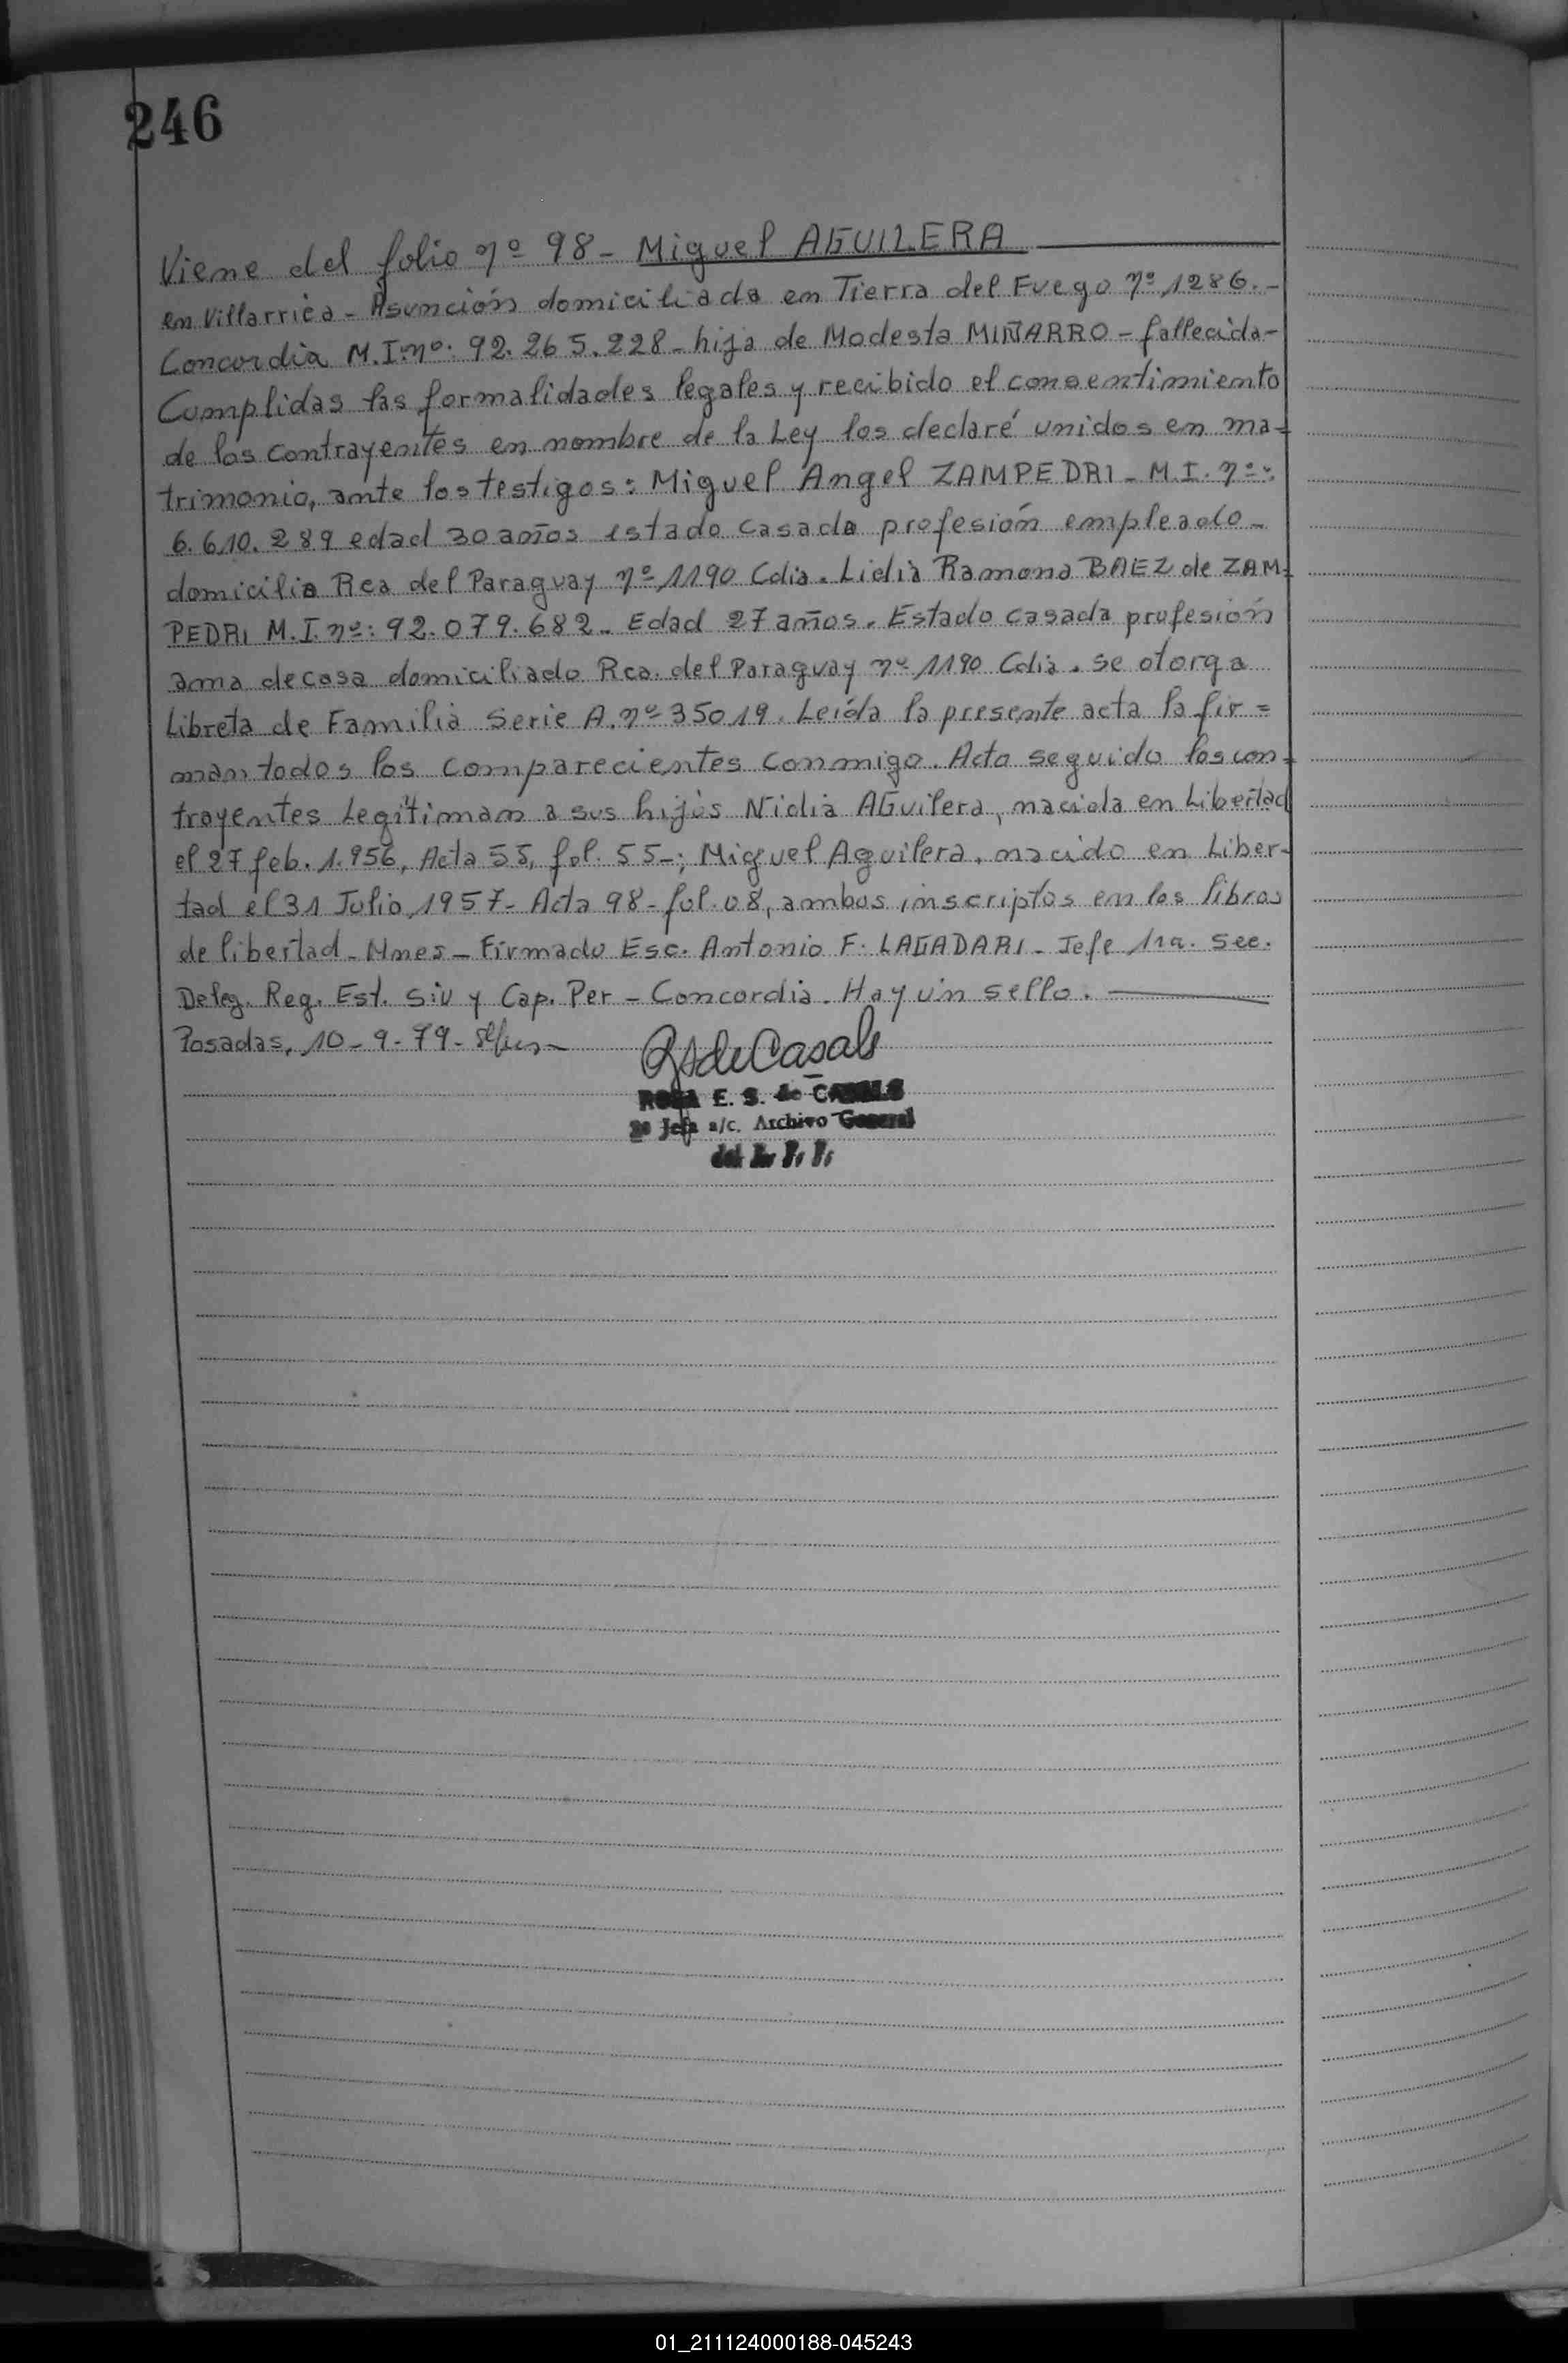 246
Viene del folio nº 98 - Miguel AGUILERA
en Villarrica - Asunción domiciliada en Tierra del Fuego nº 1286.-
Concordia M.I. nº: 92.265.228 - hija de Modesta MIÑARRO - fallecida-
Cumplidas las formalidades legales y recibido el consentimiento
de los contrayentes en nombre de la Ley los declaré unidos en ma-
trimonio, ante los testigos: Miguel Angel ZAMPEDRI - M.I. nº:
6.610.289 edad 30 años estado casado profesión empleado-
domicilio Rca del Paraguay nº 1190 Cdia. Lidia Ramona BAEZ de ZAM-
PEDRI M.I. nº: 92.079.682. Edad 27 años. Estado casada profesión
ama de casa domiciliado Rca. del Paraguay nº 1190 Cdia. se otorga
Libreta de Familia Serie A. nº 35019. Leída la presente acta la fir=
man todos los comparecientes conmigo. Acto seguido los con-
trayentes Legitiman a sus hijos Nidia AGuilera, nacida en Libertad
el 27 feb. 1.956, Acta 55, fol. 55-; Miguel Aguilera, nacido en Liber-
tad el 31 Julio 1957- Acta 98- fol. 08, ambos inscriptos en los libros
de libertad - Mnes - Firmado Esc. Antonio F. LAGADARI - Jefe 1ra. Sec.
Deleg. Reg. Est. Siv y Cap. Per - Concordia. Hay un sello.
Posadas, 10-9-79-
RSdeCasals
ROSA E. S. de CASALS
2º Jefa a/c. Archivo General
del R. P. P.
01_211124000188-045243